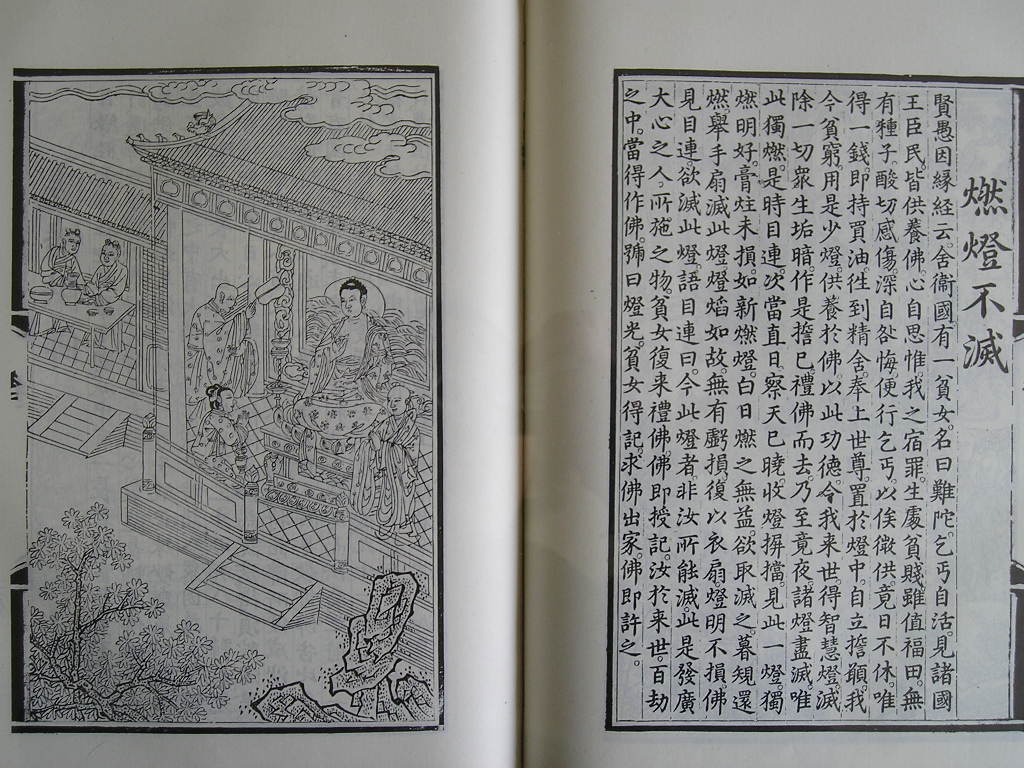 燃燈不滅
賢愚因緣經云。舍衞國有一貧女。名曰難陀。乞丐自活。見諸國
王臣民。皆供養佛。心自思惟。我之宿罪。生處貧賤。雖值福田。無
有種子。酸切感傷。深自咎悔。便行乞丐。以俟微供。竟日不休。唯
得一錢。即持買油。往到精舍。奉上世尊。置於燈中。自立誓願。我
今貧窮。用是少燈。供養於佛。以此功德。令我来世。得智慧燈。滅
除一切衆生垢暗。作是誓已。禮佛而去。乃至竟夜。諸燈盡滅。唯
此獨燃。是時目連。次當直日。察天已曉。收燈摒擋。見此一燈。獨
燃明好。膏炷未損。如新燃燈。白日燃之無益。欲取滅之。暮規還
燃。舉手扇滅此燈。燈熖如故。無有虧損。復以衣扇。燈明不損。佛
見目連。欲滅此燈。語目連曰。今此燈者。非汝所能滅。此是發廣
大心之人。所施之物。貧女復来禮佛。佛即授記。汝於来世。百劫
之中。當得作佛。號曰燈光。貧女得記。求佛出家。佛即許之。